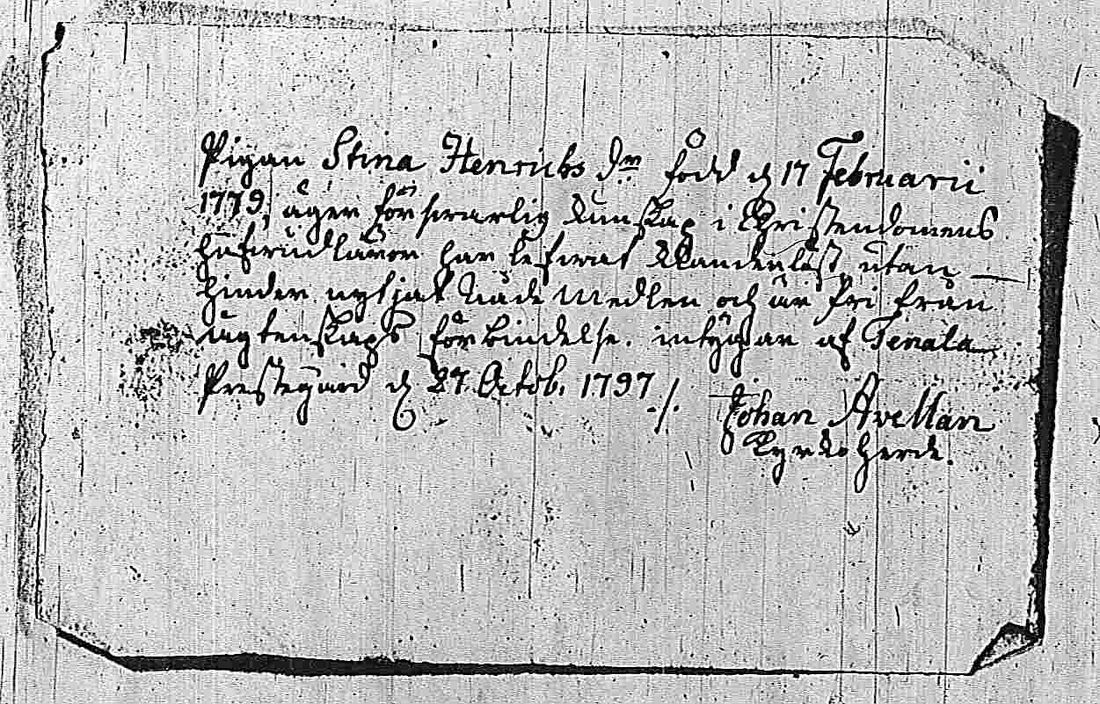 Pigan Stina Henricks dr född d 17 Februarii
1779, äger försvarlig kunskap i Christendomens
hufvudläror har lefvat oklanderligt, utan
hinder nytjat Nåde Medlen och är fri från
ägtenskaps förbindelse. intygar af Tenala
Prestegård d 27. Octob. 1797 ./.
Johan Avellan
Kyrkoherde.